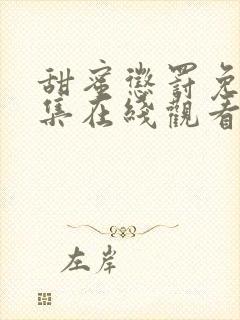 甜蜜懲罰免
集在綫觀看
左岸